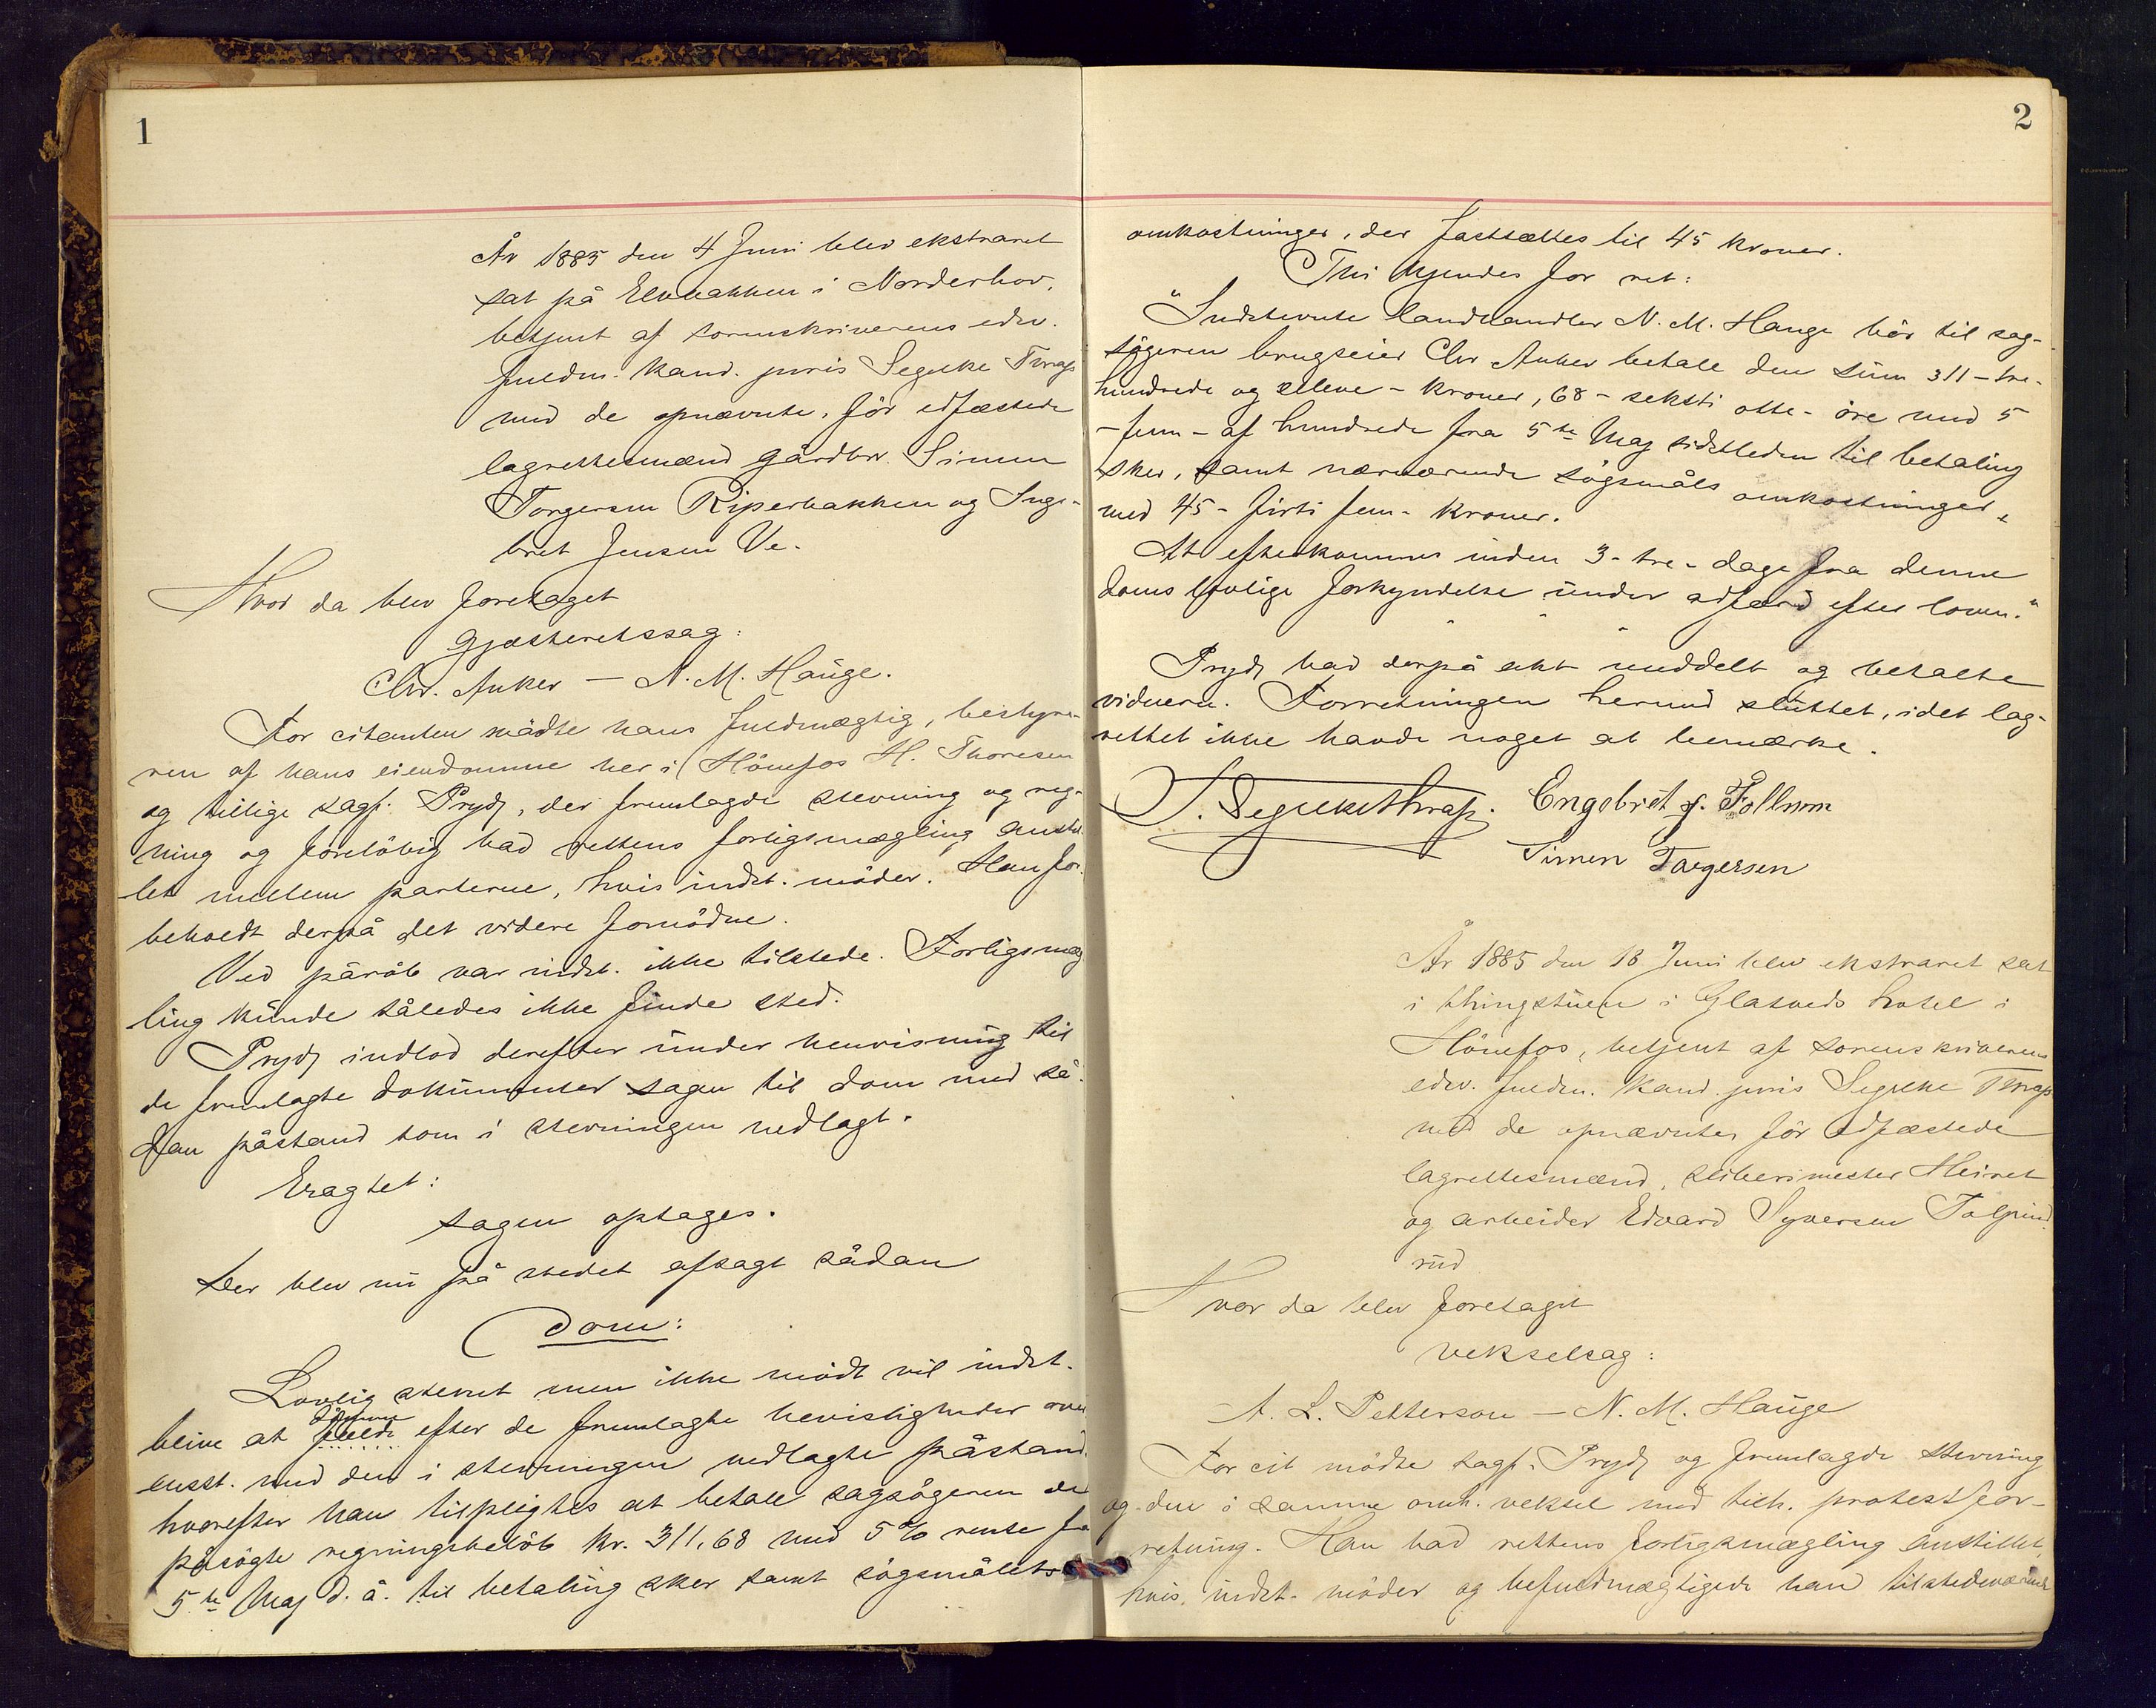 1
År 1885 den 4 Juni blev ekstraret
sat på Elvbakken i Norderhov,
betjent af sorenskriverens edsv.
fuldm. kand. juris Segelcke Thrap
med de opnævnte, för edfæstede
lagrettesmænd gårdbr. Simen
Torgersen Riperbakken og Inge-
bret Jensen Ve.
Hvor da blev foretaget
Gjæsteretssag:
Chr. Anker — N. M. Hauge.
For citanten mödte hans fuldmægtig, bestyre-
ren af hans eiendomme her i Hönefos H. Thoresen
og tillige sagf. Prydz, der fremlagde stevning og reg-
ning og forelöbig bad rettens forligsmægling anstil-
let mellem parterne, hvis indst. möder. Han for-
beholdt derpå det videre fornödne.
Ved påråb var indst. ikke tilstede. Forligsmæg
ling kunde således ikke finde sted.
Prydz indlod derefter under henvisning til
de fremlagte dokumenter sagen til dom med så-
dan påstand som i stevningen nedlagt.
Eragtet:
sagen optages.
Der blev nu på stedet afsagt sådan
Dom:
Lovlig stevnt men ikke mödt vil indst.
blive at dömme efter de fremlagte bevisligheder over
ensst. med den i stevningen nedlagte påstand,
hvorefter han tilpligtes at betale sagsögeren de
påsögte regningsbelöb kr. 311,68 med 5% rente fra
5te Maj d. å. til betaling sker samt sögsmålets
2
omkostninger, der fastsættes til 45 kroner.
Thi kjendes for ret:
"Indstevnte landhandler N. M. Hauge bör til sag-
sögeren brugseier Chr Anker betale den sum 311 - tre-
hundrede og elleve - kroner, 68 - seksti otte - öre med 5
- fem - af hundrede fra 5te Maj sidstleden til betaling
sker, samt nærværende sögsmåls omkostninger,
med 45 - firti fem - kroner.
At efterkommes inden 3 - tre - dage fra denne
doms lovlige forkyndelse under adfærd efter loven."
Prydz bad derpå akt meddelt og betalte
vidnern. Forretningen hermed sluttet, idet lag-
rettet ikke havde noget at bemærke.
S. Segelcke Thrap. Engebret J. Follum
Simen Torgersen
År 1885 den 18 Juni blev ekstraret sat
i thingstuen i Glatveds hotel i
Hönefos, betjent af sorenskriverens
edsv. fuldm. kand. juris Segelcke Thrap
med de opnævnte, för edfæstede
lagrettesmænd, sliberimester Heiret
og arbeider Edvard Syversen Tolpind
rud
Hvor da blev foretaget
vekselsag:
A. L. Petterson — N. M. Hauge
For cit mödte sagf. Prydz og fremlagde stevning
og den i samme omh. veksel med tilh. protestfor-
retning. Han bad rettens forligsmægling anstillet,
hvis indst. möder og befuldmægtigede han tilstedeværende